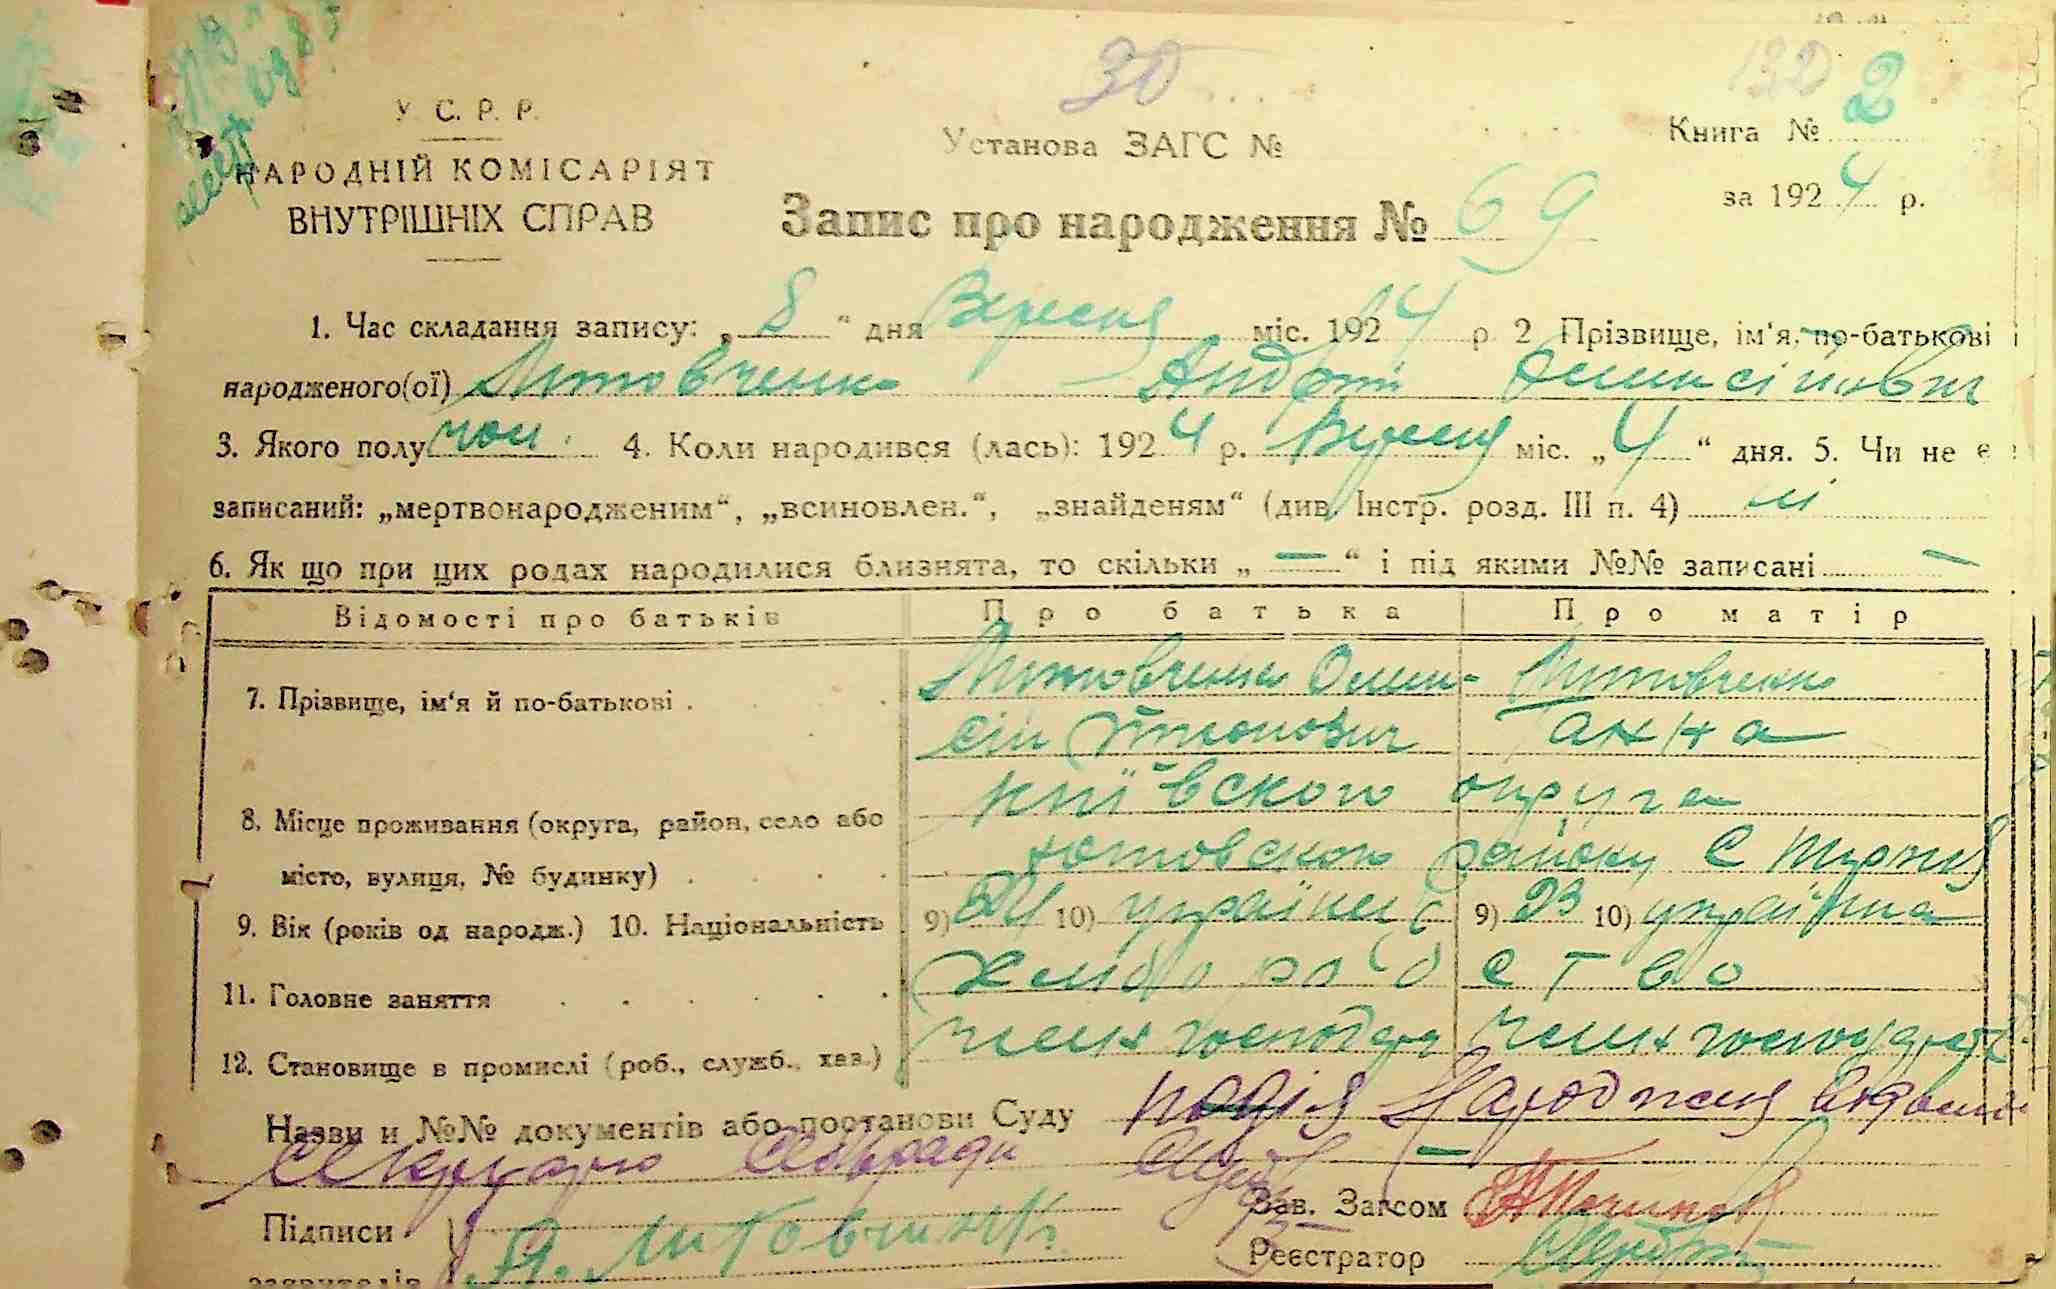 30
132 2
У. С. Р. Р.
Установа ЗАГС №
Книга №
НАРОДНІЙ КОМІСАРІЯТ
за 1924 р.
ВНУТРІШНІХ СПРАВ
Запис про народження № 69
1. Час складання запису: „8“ дня Вересня міс. 1924 р. 2 Прізвище, ім‘я, по-батькові
народженого(ої) Литовченко Андрій
3. Якого полу чол. 4. Коли народився (лась): 1924 р. Вересня міс. „4“ дня. 5. Чи не є
записаний: „мертвонародженим“, „всиновлен.“, „знайденям“ (див. Інстр. розд. III п. 4) ні
6. Як що при цих родах народилися близнята, то скільки „—“ і під якими №№ записані —
Відомості про батьків Про батька Про матір
7. Прізвище, ім‘я й по-батькові . Литовченко Литовченко
Ганна
8. Місце проживання (округа, район, село або київского округа
місто, вулиця, № будинку) . району С
9. Вік (років од народж.) 10. Національність 9) 24 10) українец 9) 23 10) українка
11. Головне заняття хлиборобство
12. Становище в промислі (роб., служб., хаз.) член господар член
Назви и №№ документів або постанови Суду подія Народженя
Секрутарю Сільради
Зав. Загсом
Підписи А. Литовченко
Реєстратор
заявителів